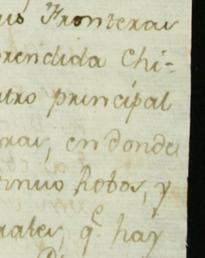 us Fronteras
prendida Chi-
tro principal
ras, en donde
tinuo Robos, y
rales, q.e hay